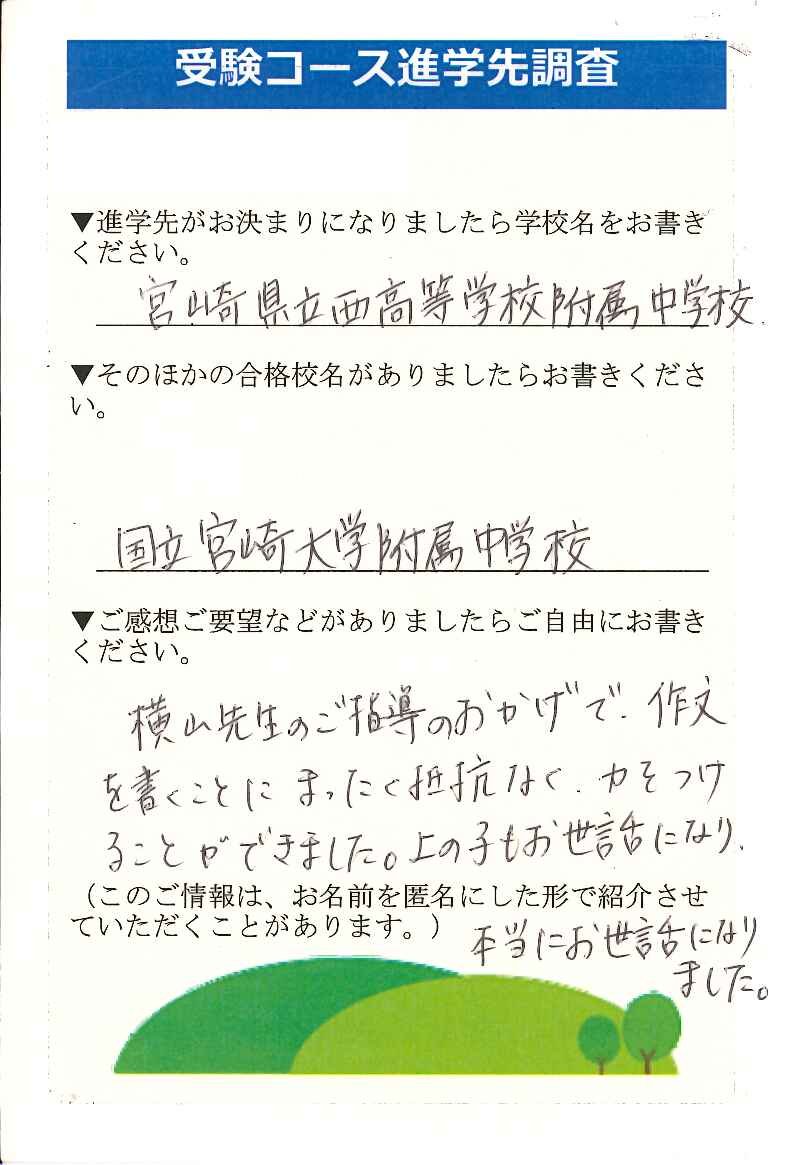 受験コース進学先調査
▼進学先がお決まりになりましたら学校名をお書き
ください。
宮崎県立西高等学校附属中学校
▼そのほかの合格校名がありましたらお書きくださ
い。
国立宮崎大学附属中学校
▼ご感想ご要望などがありましたらご自由にお書き
ください。
横山先生のご指導のおかげで、作文
を書くことにまったく抵抗なく、力をつけ
ることができました。上の子もお世話になり、
（このご情報は、お名前を匿名にした形で紹介させ
ていただくことがあります。）
本当にお世話になり
ました。